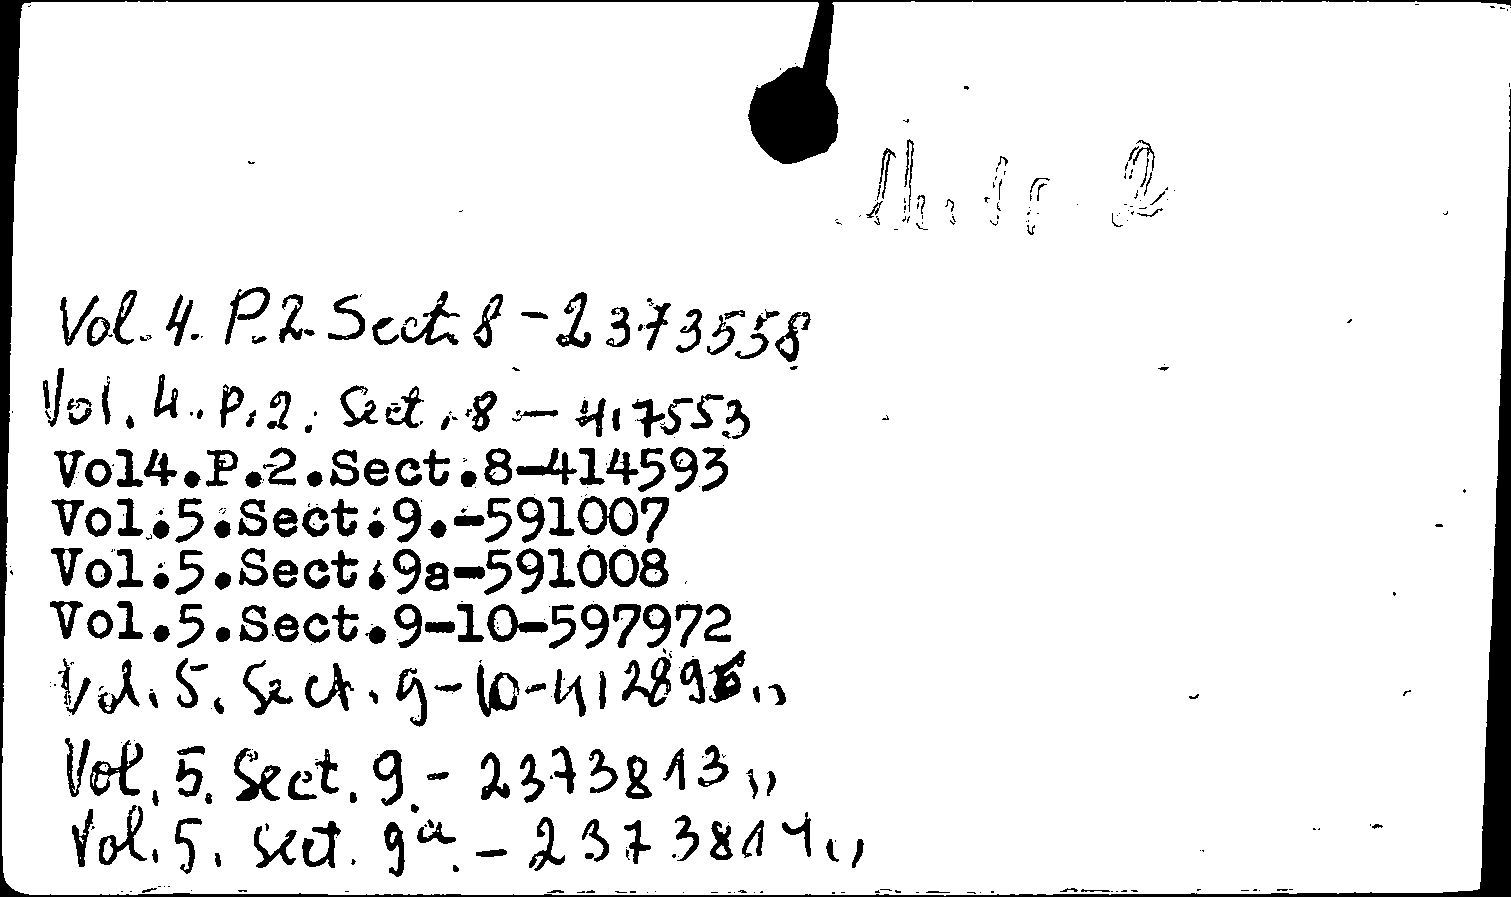 Vol. 4. P. 2. Sect. 8 - 2373558
Vol. 4. P. 2. Sect. 8 - 417553
Vol4.P.2.Sect.8-414593
Vol.5.Sect.9.-591007
Vol.5.Sect.9a-591008
Vol.5.Sect.9-10-597972
Vol. 5. Sect. 9-10-412895,,
Vol. 5. Sect. 9. - 2373813,,
Vol. 5. Sect. 9a. - 2373814,,